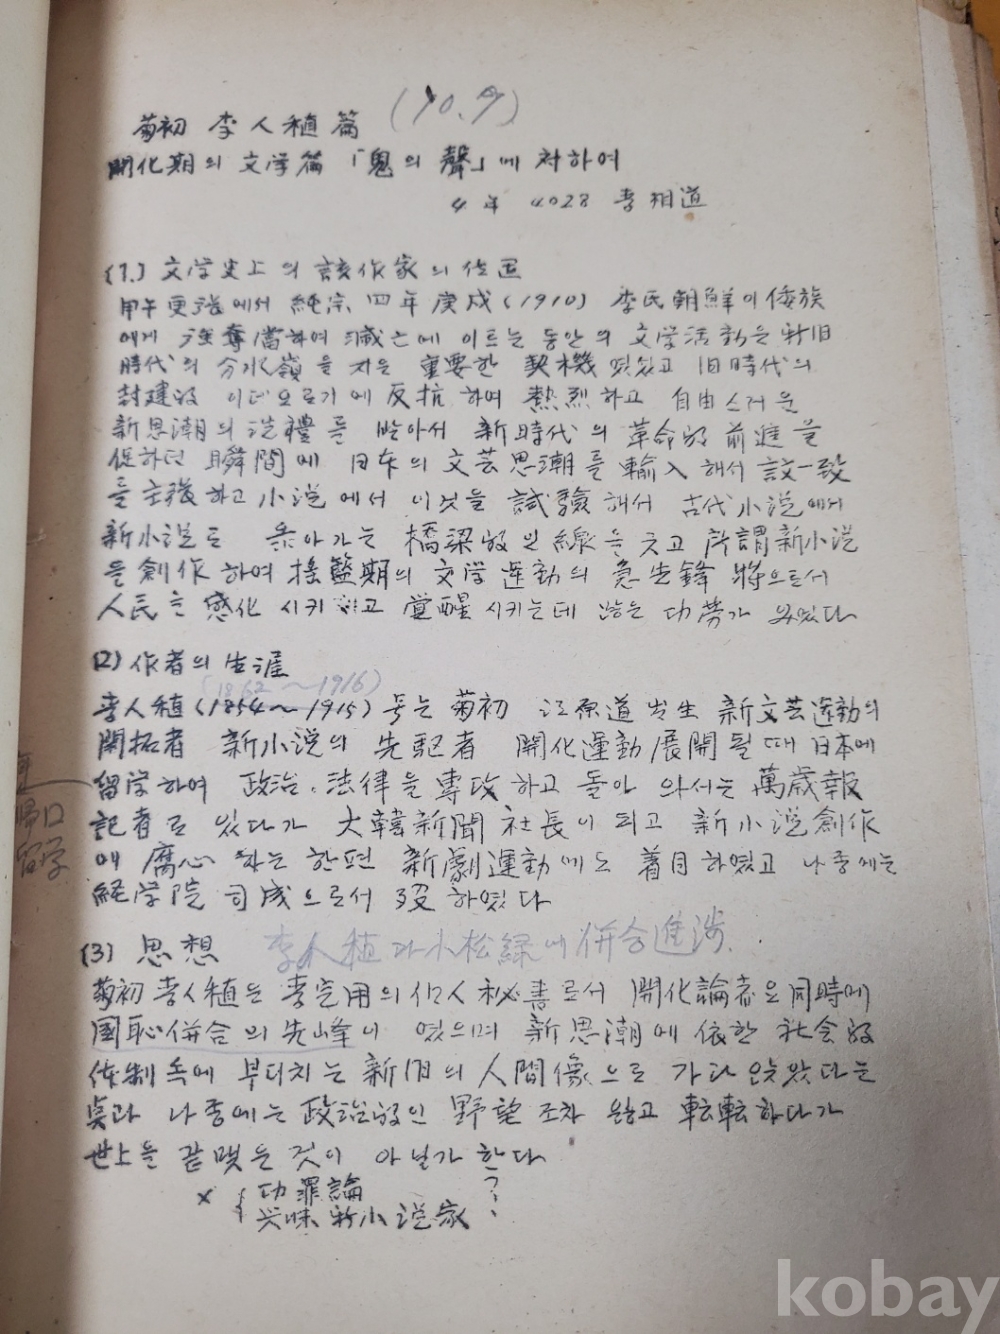 (10.9)
菊初 李人稙篇
開化期의 文学篇「鬼의 聲」에 対하여
4年 4028 李相道
(1.) 文学史上의 該作家의 位置
甲午更張에서 純宗 四年 庚戌(1910) 李氏朝鮮이 倭族
에게 强奪當하여 滅亡에 이르는 동안의 文学活動은 新旧
時代의 分水嶺을 지은 重要한 契機였었고 旧時代의
封建的 이데오르기에 反抗하여 熱烈하고 自由스러운
新思潮의 洗禮를 받아서 新時代의 革命的 前進을
促하던 瞬間에 日本의 文芸思潮를 輸入해서 言文一致
를 主張하고 小説에서 이것을 試驗해서 古代小説에서
新小説로 옮아가는 橋梁的인 線을 긋고 所謂新小説
을 創作하여 搖籃期의 文学運動의 急先鋒將으로서
人民을 感化시키고 覚醒시키는데 많은 功勞가 있었다
(2) 作者의 生涯
(1862~1916)
李人稙(1854~1915) 号는 菊初 江原道出生 新文芸運動의
開拓者 新小説의 先駆者 開化運動展開될때 日本에
留学하여 政治·法律을 専攻하고 돌아 와서는 萬歳報
記者로 있다가 大韓新聞社長이 되고 新小説創作
에 腐心하는 한편 新劇運動에도 着目하였고 나중에는
経学院 司成으로서 歿하였다
帰口
留学
(3) 思想 李人稙과 小松緑에 併合進渉.
菊初 李人稙은 李完用의 個人秘書로서 開化論者요 同時에
國恥併合의 先峰이었으며 新思潮에 依한 社会的
体制속에 부디치는 新旧의 人間像으로 가라앉았다는
点과 나중에는 政治的인 野望조차 잃고 転転하다가
世上을 끝맺은 것이 아닌가 한다
× { 功罪論
興味 新小説家
kobay